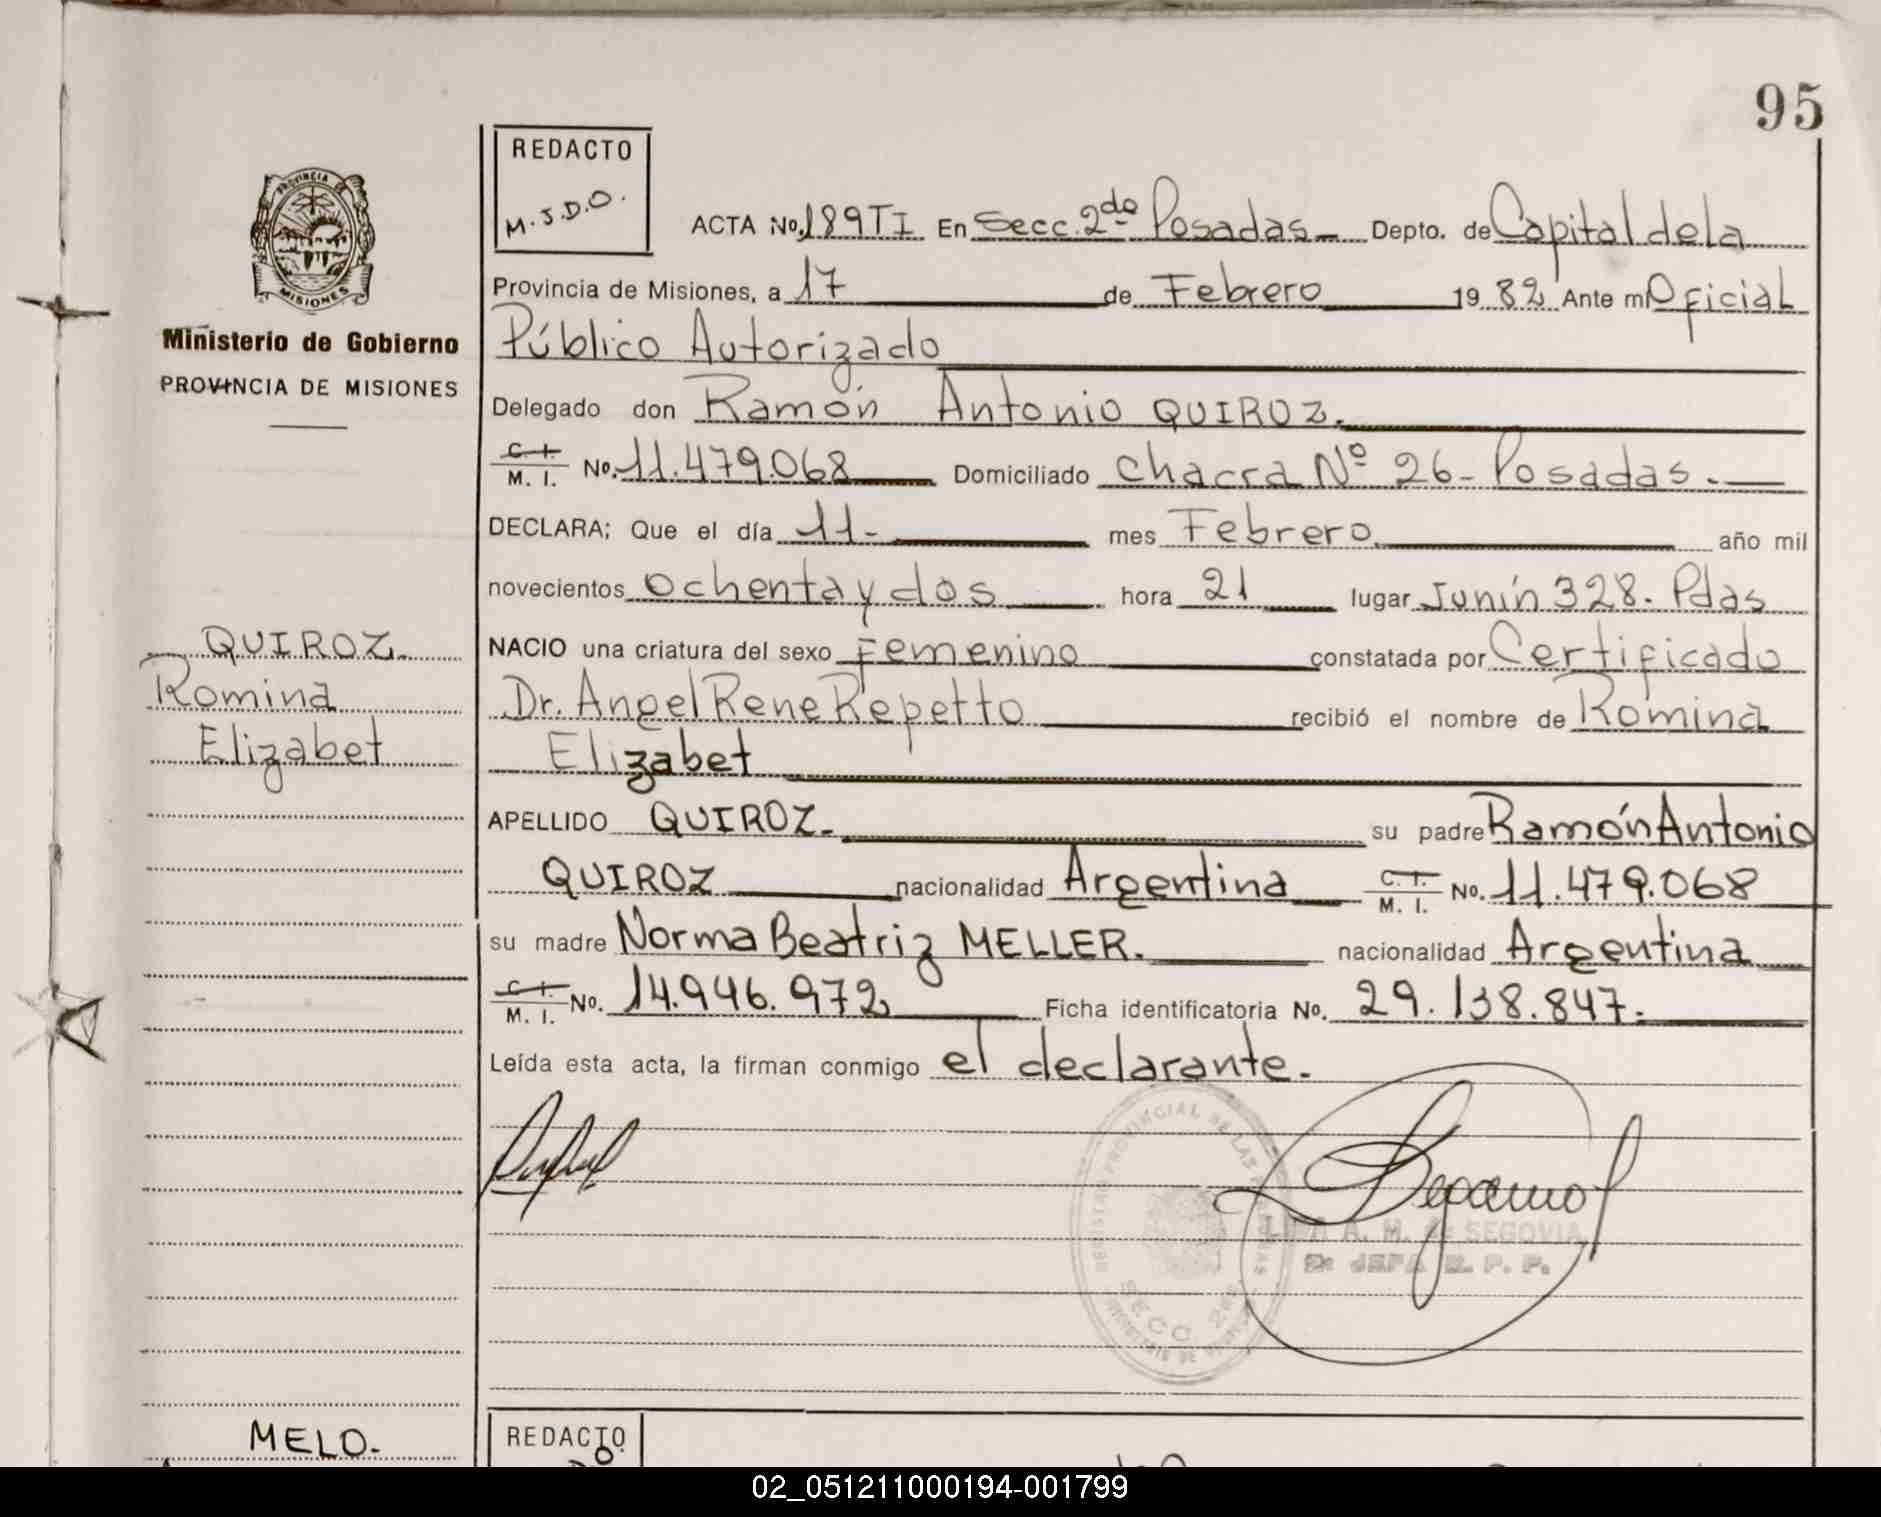 95
REDACTO
M.J.D.O.
ACTA No. 189TI En Secc. 2da Posadas - Depto. de Capital de la
Provincia de Misiones, a 17 de Febrero 19 82 Ante mi Oficial
Público Autorizado
Delegado don Ramón Antonio QUIROZ.
C. I. M. I. No. 11.479.068 Domiciliado Chacra Nº 26 - Posadas. -
DECLARA; Que el día 11 - mes Febrero año mil
novecientos ochenta y dos hora 21 lugar Junín 328. Pdas
NACIO una criatura del sexo Femenino constatada por Certificado
Dr. Angel Rene Repetto recibió el nombre de Romina
Elizabet
APELLIDO QUIROZ - su padre Ramón Antonio
QUIROZ nacionalidad Argentina C. I. M. I. No. 11.479.068
su madre Norma Beatriz MELLER. nacionalidad Argentina
C. I. M. I. No. 14.946.972 Ficha identificatoria No. 29.138.847.
Leída esta acta, la firman conmigo el declarante.
REGISTRO PROVINCIAL DE LAS PERSONAS
SECC. 2da
A. M. de SEGOVIA
2a JEFA R. P. P.
PROVINCIA DE
MISIONES
Ministerio de Gobierno
PROVINCIA DE MISIONES
QUIROZ
Romina
Elizabet
MELO.
REDACTO
02_051211000194-001799